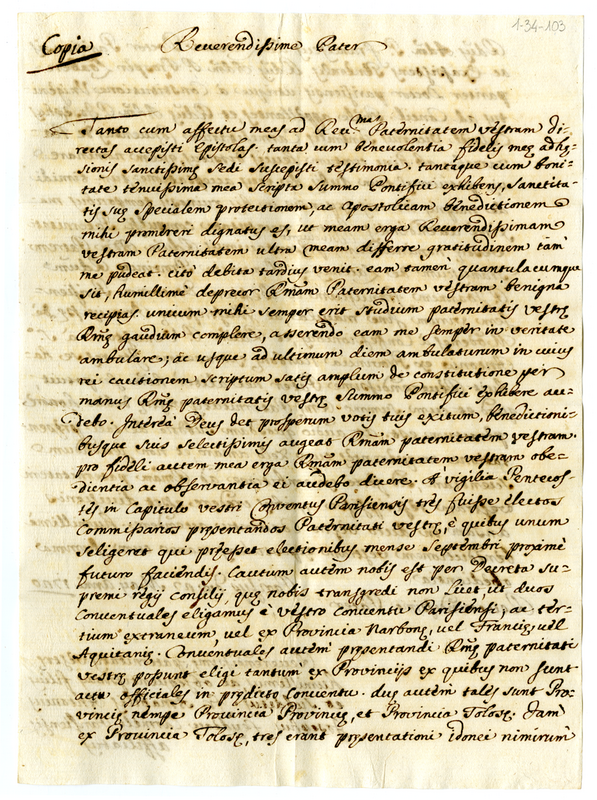 1-34-103
Copia Reverendissime Pater
Tanto cum affectu meas ad Rev:mam Paternitatem vestram di-
rectas accepisti Epistolas. tanta cum benevolentia fidelis meę adhę-
sionis sanctissimę Sedi suscepisti testimonia. tantaque cum boni-
tate tenuissima mea scripta Summo Pontifici exhibens, Sanctita-
tis suę specialem protectionem, ac Apostolicam benedictionem
mihi promereri dignatus es, ut meam erga Reverendissimam
vestram Paternitatem ultra meam differre gratitudinem tam
me pudeat. cito debita tardius venit. eam tamen quantulacumque
sit, humillime deprecor Rmam Paternitatem vestram benigne
recipias. unicum mihi semper erit studium paternitatis vestrę
Rmę gaudium complere, asserendo eam me semper in veritate
ambulare; ac usque ad ultimum diem ambulaturum in cuius
rei cautionem scriptum satis amplum de constitutione per
manus Rmę paternitatis vestrę Summo Pontifici exhibere au-
debo. Interea Deus det prosperum votis tuis exitum, benedictioni-
busque suis selectissimis augeat Rmam paternitatem vestram.
pro fideli autem mea erga Rmam paternitatem vestram obe-
dientia ac observantia ei audebo dicere. A vigilia Pentecos-
tes in Capitulo vestri Conventus Parisiensis tres fuisse electos
Commissarios pręsentandos Paternitati vestrę, è quibus unum
seligeret qui pręesset electionibus mense Septembri proximè
futuro faciendis. Cautum autem nobis est per Decreta su-
premi regij consilij quę nobis transgredi non licet, ut duos
Conventuales eligamus è vestro Conventu Parisiensi, ac ter-
tium extraneum, vel ex Provincia Narbonę, vel Francię, vel
Aquitanię. Conventuales autem pręsentandi Rmę paternitati
vestrę possunt eligi tantum ex Provincijs ex quibus non sunt
actu officiales in prędicto Conventu. duę autem tales sunt Pro-
vincię nempe Provincia Provincię, et Provincia Tolosę. Jam
ex Provincia Tolosę, tres erant pręsentationi idonei nimirum